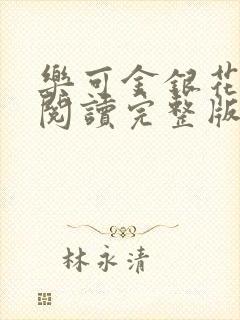 樂可金銀花
閱讀完整版
林永清